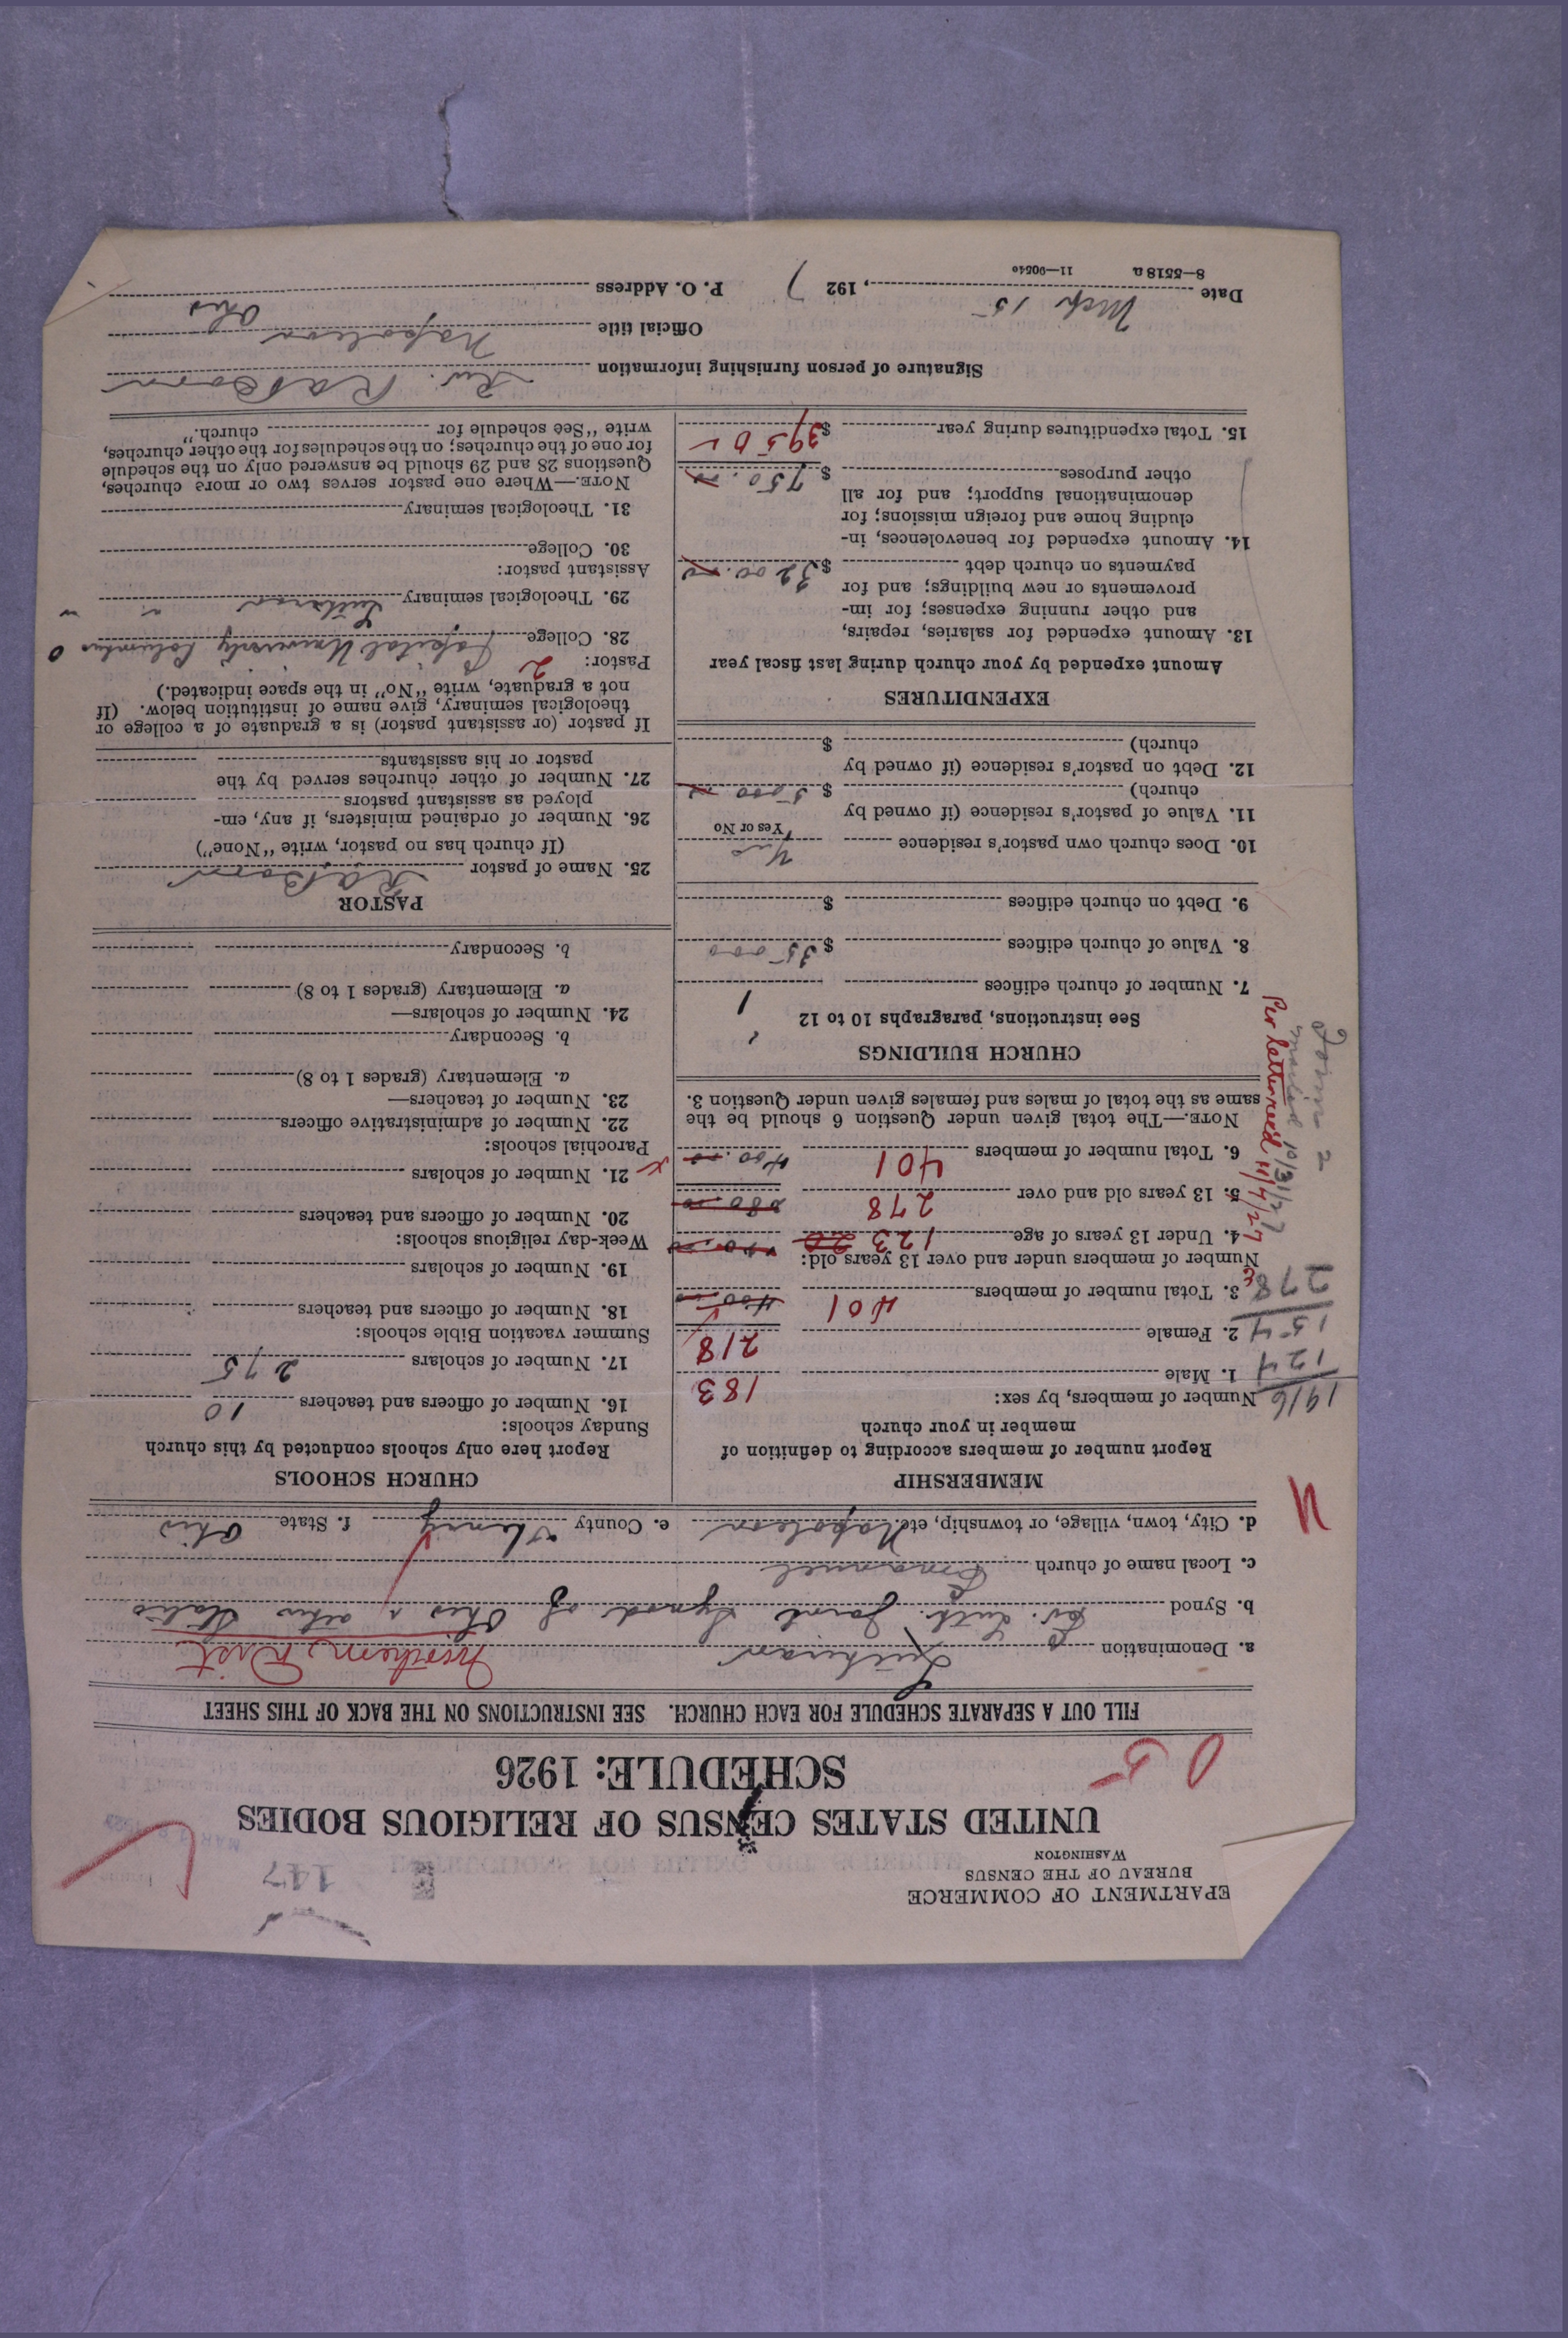 EPARTMENT OF COMMERCE
BUREAU OF THE CENSUS
WASHINGTON
147
UNITED STATES CENSUS OF RELIGIOUS BODIES
SCHEDULE: 1926
05
FILL OUT A SEPARATE SCHEDULE FOR EACH CHURCH. SEE INSTRUCTIONS ON THE BACK OF THIS SHEET
a. Denomination Lutheran Northern Dist
b. Synod Ev. Luth. Joint Synod of Ohio & other States
c. Local name of church Emanuel
d. City, town, village, or township, etc. Napoleon e. County Henry f. State Ohio
MEMBERSHIP
Report number of members according to definition of
member in your church
Number of members, by sex:
1916
1. Male 183
124
2. Female 218
154
3. Total number of members 401 400
278
Number of members under and over 13 years old:
4. Under 13 years of age 123
5. 13 years old and over 278 280
6. Total number of members 401 400
NOTE.—The total given under Question 6 should be the
same as the total of males and females given under Question 3.
Form 2
mailed 10/31/27
Per letter rec'd 11/7/27
CHURCH BUILDINGS
See instructions, paragraphs 10 to 12
7. Number of church edifices 1
8. Value of church edifices $ 35000
9. Debt on church edifices $
10. Does church own pastor's residence Yes
Yes or No
11. Value of pastor's residence (if owned by
church) $ 5000
12. Debt on pastor's residence (if owned by
church) $
EXPENDITURES
Amount expended by your church during last fiscal year
13. Amount expended for salaries, repairs,
and other running expenses; for im-
provements or new buildings; and for
payments on church debt $ 3200
14. Amount expended for benevolences, in-
cluding home and foreign missions; for
denominational support; and for all
other purposes $ 750
15. Total expenditures during year $ 3950
CHURCH SCHOOLS
Report here only schools conducted by this church
Sunday schools:
16. Number of officers and teachers 10
17. Number of scholars 275
Summer vacation Bible schools:
18. Number of officers and teachers
19. Number of scholars
Week-day religious schools:
20. Number of officers and teachers
21. Number of scholars
Parochial schools:
22. Number of administrative officers
23. Number of teachers—
a. Elementary (grades 1 to 8)
b. Secondary
24. Number of scholars—
a. Elementary (grades 1 to 8)
b. Secondary
PASTOR
25. Name of pastor
(If church has no pastor, write "None")
26. Number of ordained ministers, if any, em-
ployed as assistant pastors
27. Number of other churches served by the
pastor or his assistants
If pastor (or assistant pastor) is a graduate of a college or
theological seminary, give name of institution below. (If
not a graduate, write "No" in the space indicated.)
Pastor: 2
28. College Capital University Columbus O
29. Theological seminary Lutheran " "
Assistant pastor:
30. College
31. Theological seminary
NOTE.—Where one pastor serves two or more churches,
Questions 28 and 29 should be answered only on the schedule
for one of the churches; on the schedules for the other churches,
write "See schedule for church."
Signature of person furnishing information Rev.
Official title Napoleon Ohio
Date Mch 15, 1927 P. O. Address
8—5518a 11—9054